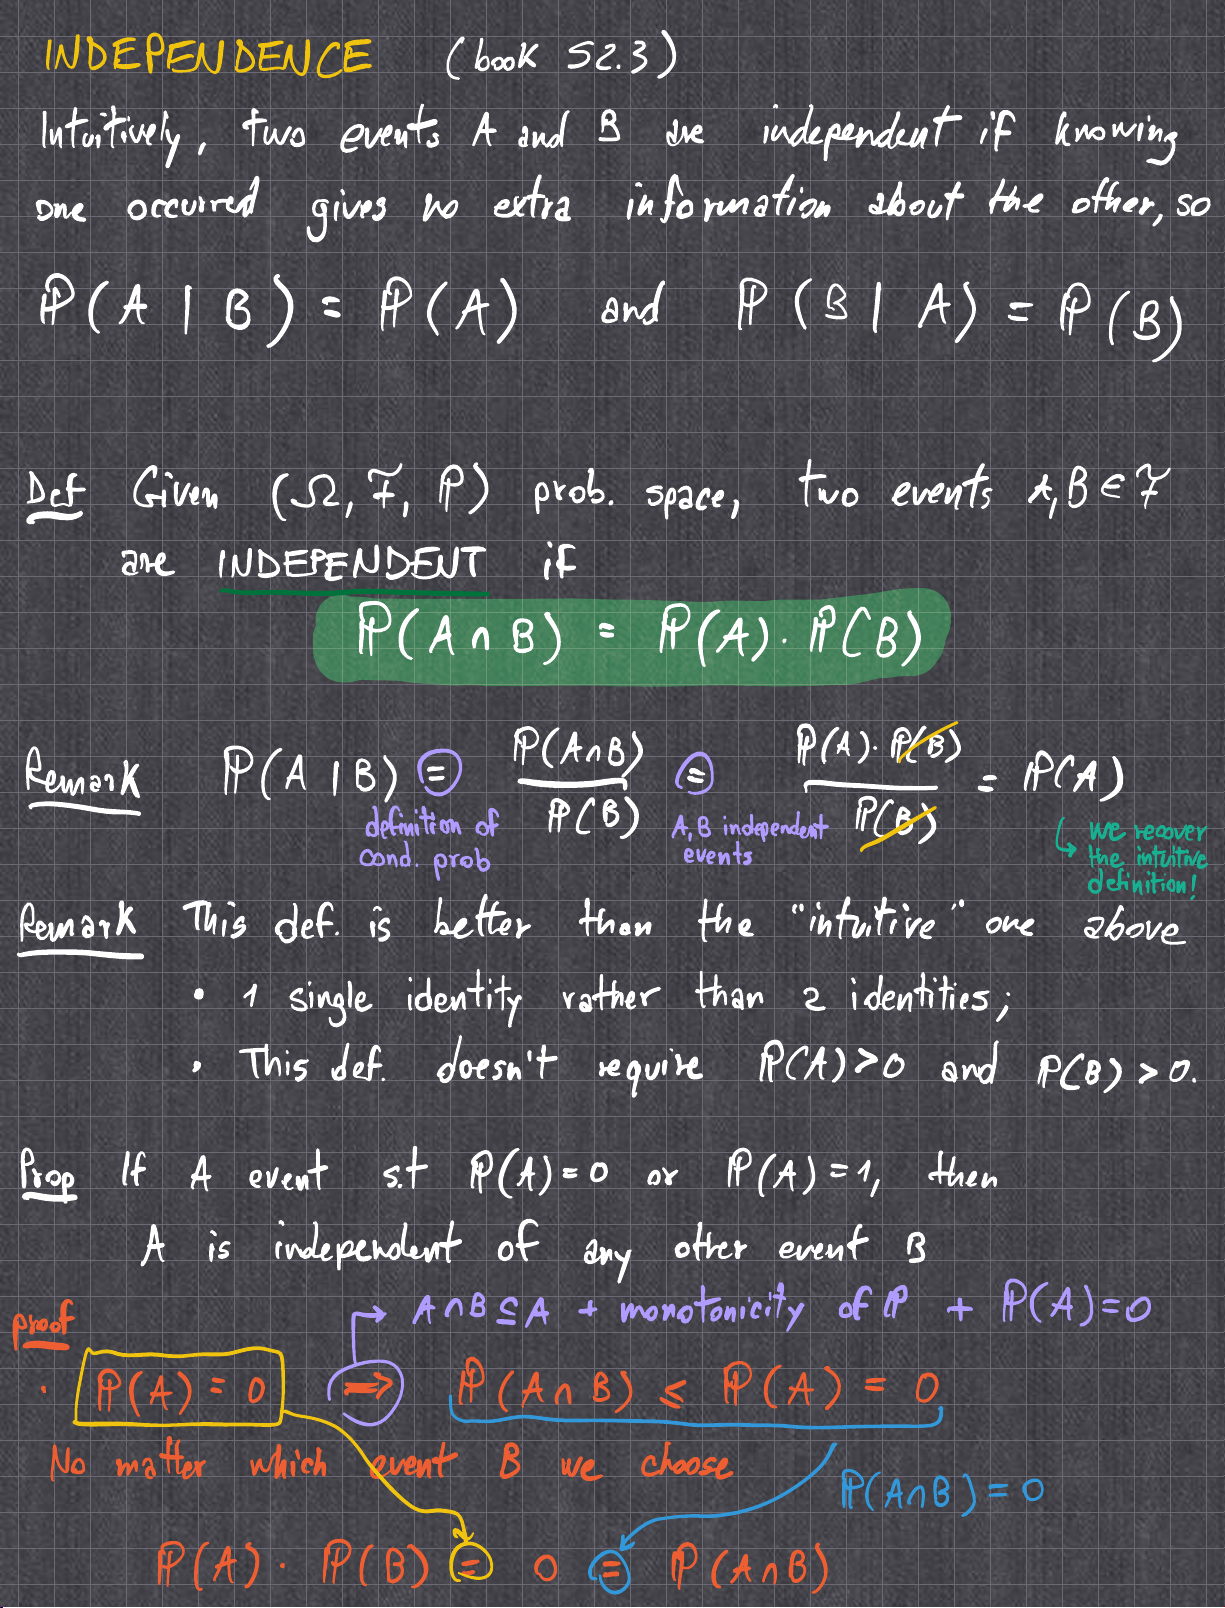 INDEPENDENCE (book S2.3)
Intuitively, two events A and B are independent if knowing
one occurred gives no extra information about the other, so
ℙ(A | B) = ℙ(A) and ℙ(B | A) = ℙ(B)
Def Given (Ω, ℱ, ℙ) prob. space, two events A, B ∈ ℱ
are INDEPENDENT if
ℙ(A ∩ B) = ℙ(A) · ℙ(B)
Remark ℙ(A | B) = ℙ(A∩B) / ℙ(B) = ℙ(A) · ℙ(B) / ℙ(B) = ℙ(A)
definition of
cond. prob
A, B independent
events
↳ we recover
the intuitive
definition!
Remark This def. is better than the "intuitive" one above
• 1 single identity rather than 2 identities;
• This def. doesn't require ℙ(A) > 0 and ℙ(B) > 0.
Prop If A event s.t ℙ(A) = 0 or ℙ(A) = 1, then
A is independent of any other event B
proof
→ A∩B ⊆ A + monotonicity of ℙ + ℙ(A) = 0
· ℙ(A) = 0 ⇒ ℙ(A ∩ B) ≤ ℙ(A) = 0
No matter which event B we choose
ℙ(A∩B) = 0
ℙ(A) · ℙ(B) = 0 = ℙ(A∩B)